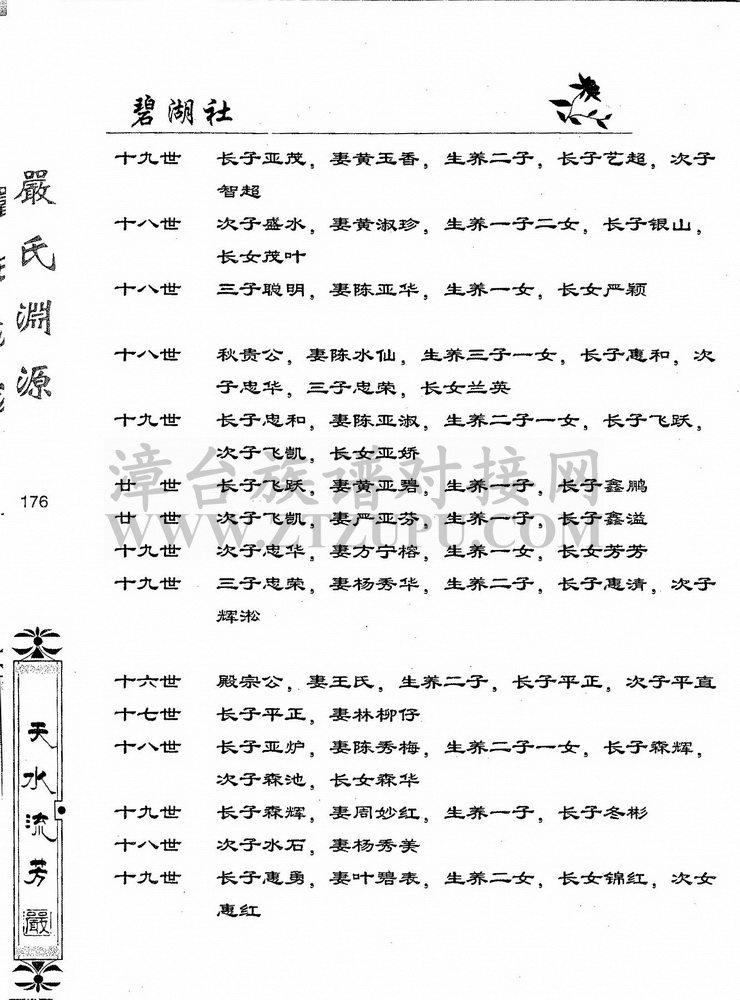 碧湖社
十九世 长子亚茂，妻黄玉香，生养二子，长子艺超，次子
智超
十八世 次子盛水，妻黄淑珍，生养一子二女，长子银山，
长女茂叶
十八世 三子聪明，妻陈亚华，生养一女，长女严颖
十八世 秋贵公，妻陈水仙，生养三子一女，长子惠和，次
子忠华，三子忠荣，长女兰英
十九世 长子忠和，妻陈亚淑，生养二子一女，长子飞跃，
次子飞凯，长女亚娇
廿 世 长子飞跃，妻黄亚碧，生养一子，长子鑫鹏
廿 世 次子飞凯，妻严亚芬，生养一子，长子鑫溢
十九世 次子忠华，妻方宁榕，生养一女，长女芳芳
十九世 三子忠荣，妻杨秀华，生养二子，长子惠清，次子
辉淞
十六世 殿宗公，妻王氏，生养二子，长子平正，次子平直
十七世 长子平正，妻林柳仔
十八世 长子亚炉，妻陈秀梅，生养二子一女，长子森辉，
次子森池，长女森华
十九世 长子森辉，妻周妙红，生养一子，长子冬彬
十八世 次子水石，妻杨秀美
十九世 长子惠勇，妻叶碧表，生养二女，长女锦红，次女
惠红
嚴氏淵源
176
天水流芳
嚴
漳台族谱对接网
WWW.ZTZUPU.COM